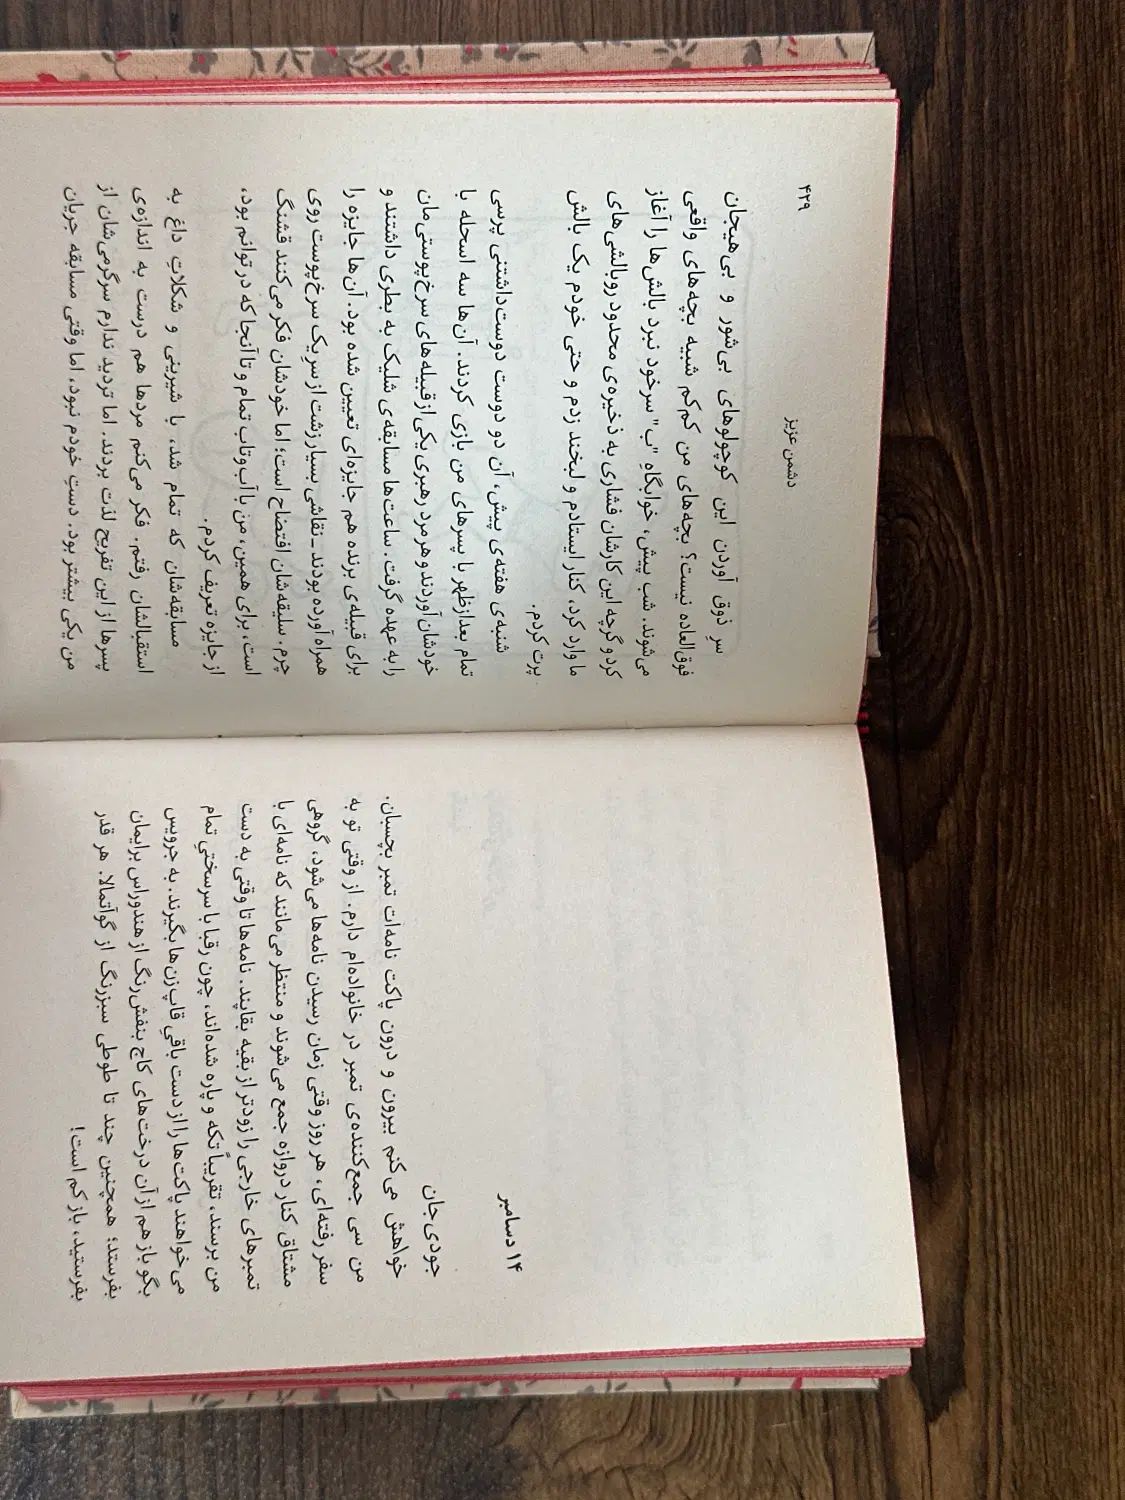 ۱۴ دسامبر
جودی‌جان
خواهش می‌کنم بیرون و درون پاکت نامه‌ات تمبر بچسبان.
من سی جمع‌کننده‌ی تمبر در خانواده‌ام دارم. از وقتی تو به
سفر رفته‌ای، هر روز وقتی زمان رسیدن نامه‌ها می‌شود، گروهی
مشتاق کنار دروازه جمع می‌شوند و منتظر می‌مانند که نامه‌ای با
تمبرهای خارجی را زودتر از بقیه بقاپند. نامه‌ها تا وقتی به دست
من برسند، تقریباً تکه و پاره شده‌اند، چون رقبا با سرسختیِ تمام
می‌خواهند پاکت‌ها را از دست باقیِ قاپ‌زن‌ها بگیرند. به جرویس
بگو باز هم از آن درخت‌های کاج بنفش‌رنگ از هندوراس برایمان
بفرستد؛ همچنین چند تا طوطی سبزرنگ از گواتمالا. هر قدر
بفرستید، باز کم است!
دشمن عزیز
۴۲۹
سرِ ذوق آوردن این کوچولوهای بی‌شور و بی‌هیجان
فوق‌العاده نیست؟ بچه‌های من کم‌کم شبیه بچه‌های واقعی
می‌شوند. شب پیش، خوابگاهِ "ب" سرخود نبرد بالش‌ها را آغاز
کرد و گرچه این کارشان فشاری به ذخیره‌ی محدود روبالشی‌های
ما وارد کرد، کنار ایستادم و لبخند زدم و حتی خودم یک بالش
پرت کردم.
شنبه‌ی هفته‌ی پیش، آن دو دوست دوست‌داشتنی پرسی
تمام بعدازظهر با پسرهای من بازی کردند. آن‌ها سه اسحله با
خودشان آوردند و هر مرد رهبری یکی از قبیله‌های سرخ‌پوستی‌مان
را به عهده گرفت. ساعت‌ها مسابقه‌ی شلیک به بطری داشتند و
برای قبیله‌ی برنده هم جایزه‌ای تعیین شده بود. آن‌ها جایزه را
همراه آورده بودند ــ نقاشی بسیار زشت از سرِ یک سرخ‌پوست روی
چرم. سلیقه‌شان افتضاح است؛ اما خودشان فکر می‌کنند قشنگ
است، برای همین، من با آب‌وتاب تمام و تا آنجا که در توانم بود،
از جایزه تعریف کردم.
مسابقه‌شان که تمام شد، با شیرینی و شکلاتِ داغ به
استقبالشان رفتم. فکر می‌کنم مردها هم درست به اندازه‌ی
پسرها از این تفریح لذت بردند. اما تردید ندارم سرگرمی‌شان از
من یکی بیشتر بود. دستِ خودم نبود، اما وقتی مسابقه جریان